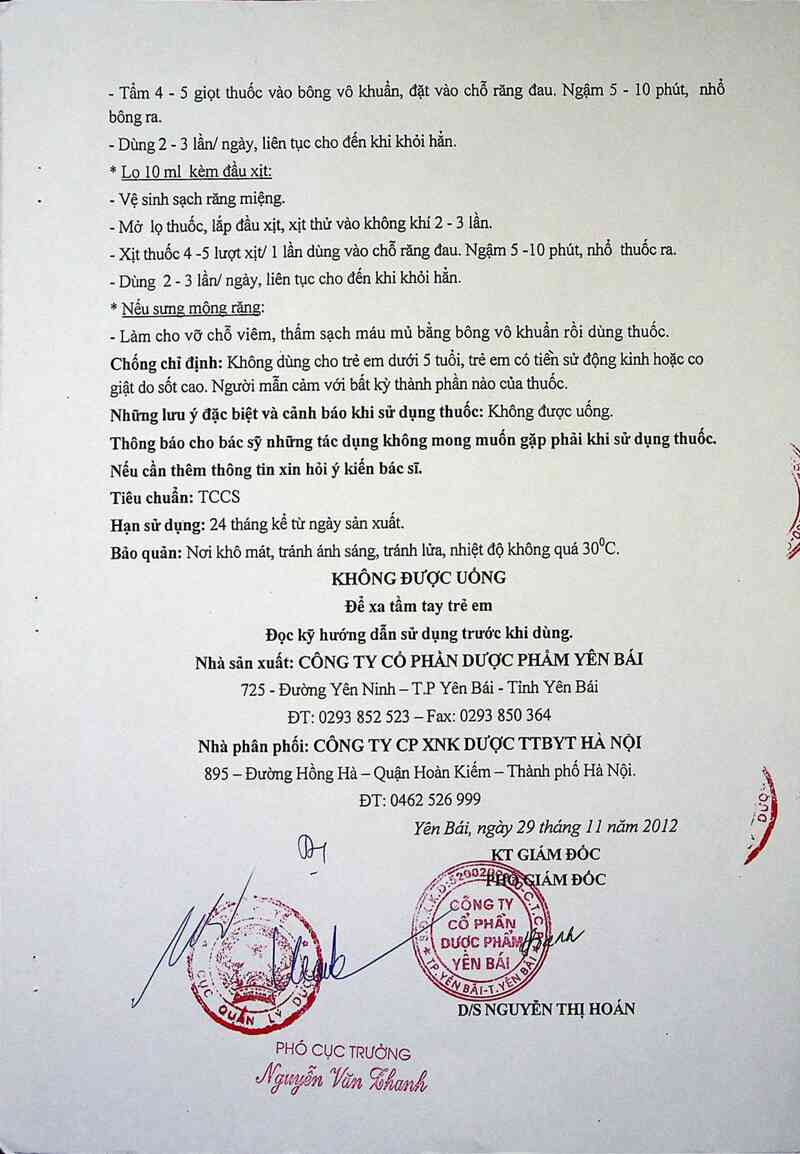 - Tẩm 4 - 5 giọt thuốc vào bông vô khuẩn, đặt vào chỗ răng đau. Ngậm 5 - 10 phút, nhổ
bông ra.
- Dùng 2 - 3 lần/ ngày, liên tục cho đến khi khỏi hẳn.
* Lọ 10 ml kèm đầu xịt:
- Vệ sinh sạch răng miệng.
- Mở lọ thuốc, lắp đầu xịt, xịt thử vào không khí 2 - 3 lần.
- Xịt thuốc 4 -5 lượt xịt/ 1 lần dùng vào chỗ răng đau. Ngậm 5 -10 phút, nhổ thuốc ra.
- Dùng 2 - 3 lần/ ngày, liên tục cho đến khi khỏi hẳn.
* Nếu sưng mộng răng:
- Làm cho vỡ chỗ viêm, thấm sạch máu mủ bằng bông vô khuẩn rồi dùng thuốc.
Chống chỉ định: Không dùng cho trẻ em dưới 5 tuổi, trẻ em có tiền sử động kinh hoặc co
giật do sốt cao. Người mẫn cảm với bất kỳ thành phần nào của thuốc.
Những lưu ý đặc biệt và cảnh báo khi sử dụng thuốc: Không được uống.
Thông báo cho bác sỹ những tác dụng không mong muốn gặp phải khi sử dụng thuốc.
Nếu cần thêm thông tin xin hỏi ý kiến bác sĩ.
Tiêu chuẩn: TCCS
Hạn sử dụng: 24 tháng kể từ ngày sản xuất.
Bảo quản: Nơi khô mát, tránh ánh sáng, tránh lửa, nhiệt độ không quá 30⁰C.
KHÔNG ĐƯỢC UỐNG
Để xa tầm tay trẻ em
Đọc kỹ hướng dẫn sử dụng trước khi dùng.
Nhà sản xuất: CÔNG TY CỔ PHẦN DƯỢC PHẨM YÊN BÁI
725 - Đường Yên Ninh – T.P Yên Bái - Tỉnh Yên Bái
ĐT: 0293 852 523 – Fax: 0293 850 364
Nhà phân phối: CÔNG TY CP XNK DƯỢC TTBYT HÀ NỘI
895 – Đường Hồng Hà – Quận Hoàn Kiếm – Thành phố Hà Nội.
ĐT: 0462 526 999
Yên Bái, ngày 29 tháng 11 năm 2012
KT GIÁM ĐỐC
PHÓ GIÁM ĐỐC
CÔNG TY
CỔ PHẦN
DƯỢC PHẨM
YÊN BÁI
TP.YÊN BÁI-T.YÊN BÁI
D/S NGUYỄN THỊ HOÁN
CỤC QUẢN LÝ DƯỢC
PHÓ CỤC TRƯỞNG
Nguyễn Văn Thanh